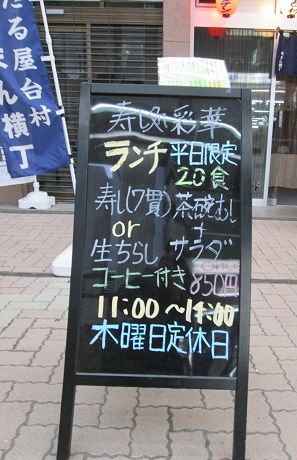 たる屋台村
まん横丁
寿し処彩華
ランチ 平日限定
20食
寿し(7貫) 茶碗むし
or +
生ちらし サラダ
コーヒー付き 850円
11:00～14:00
木曜日定休日